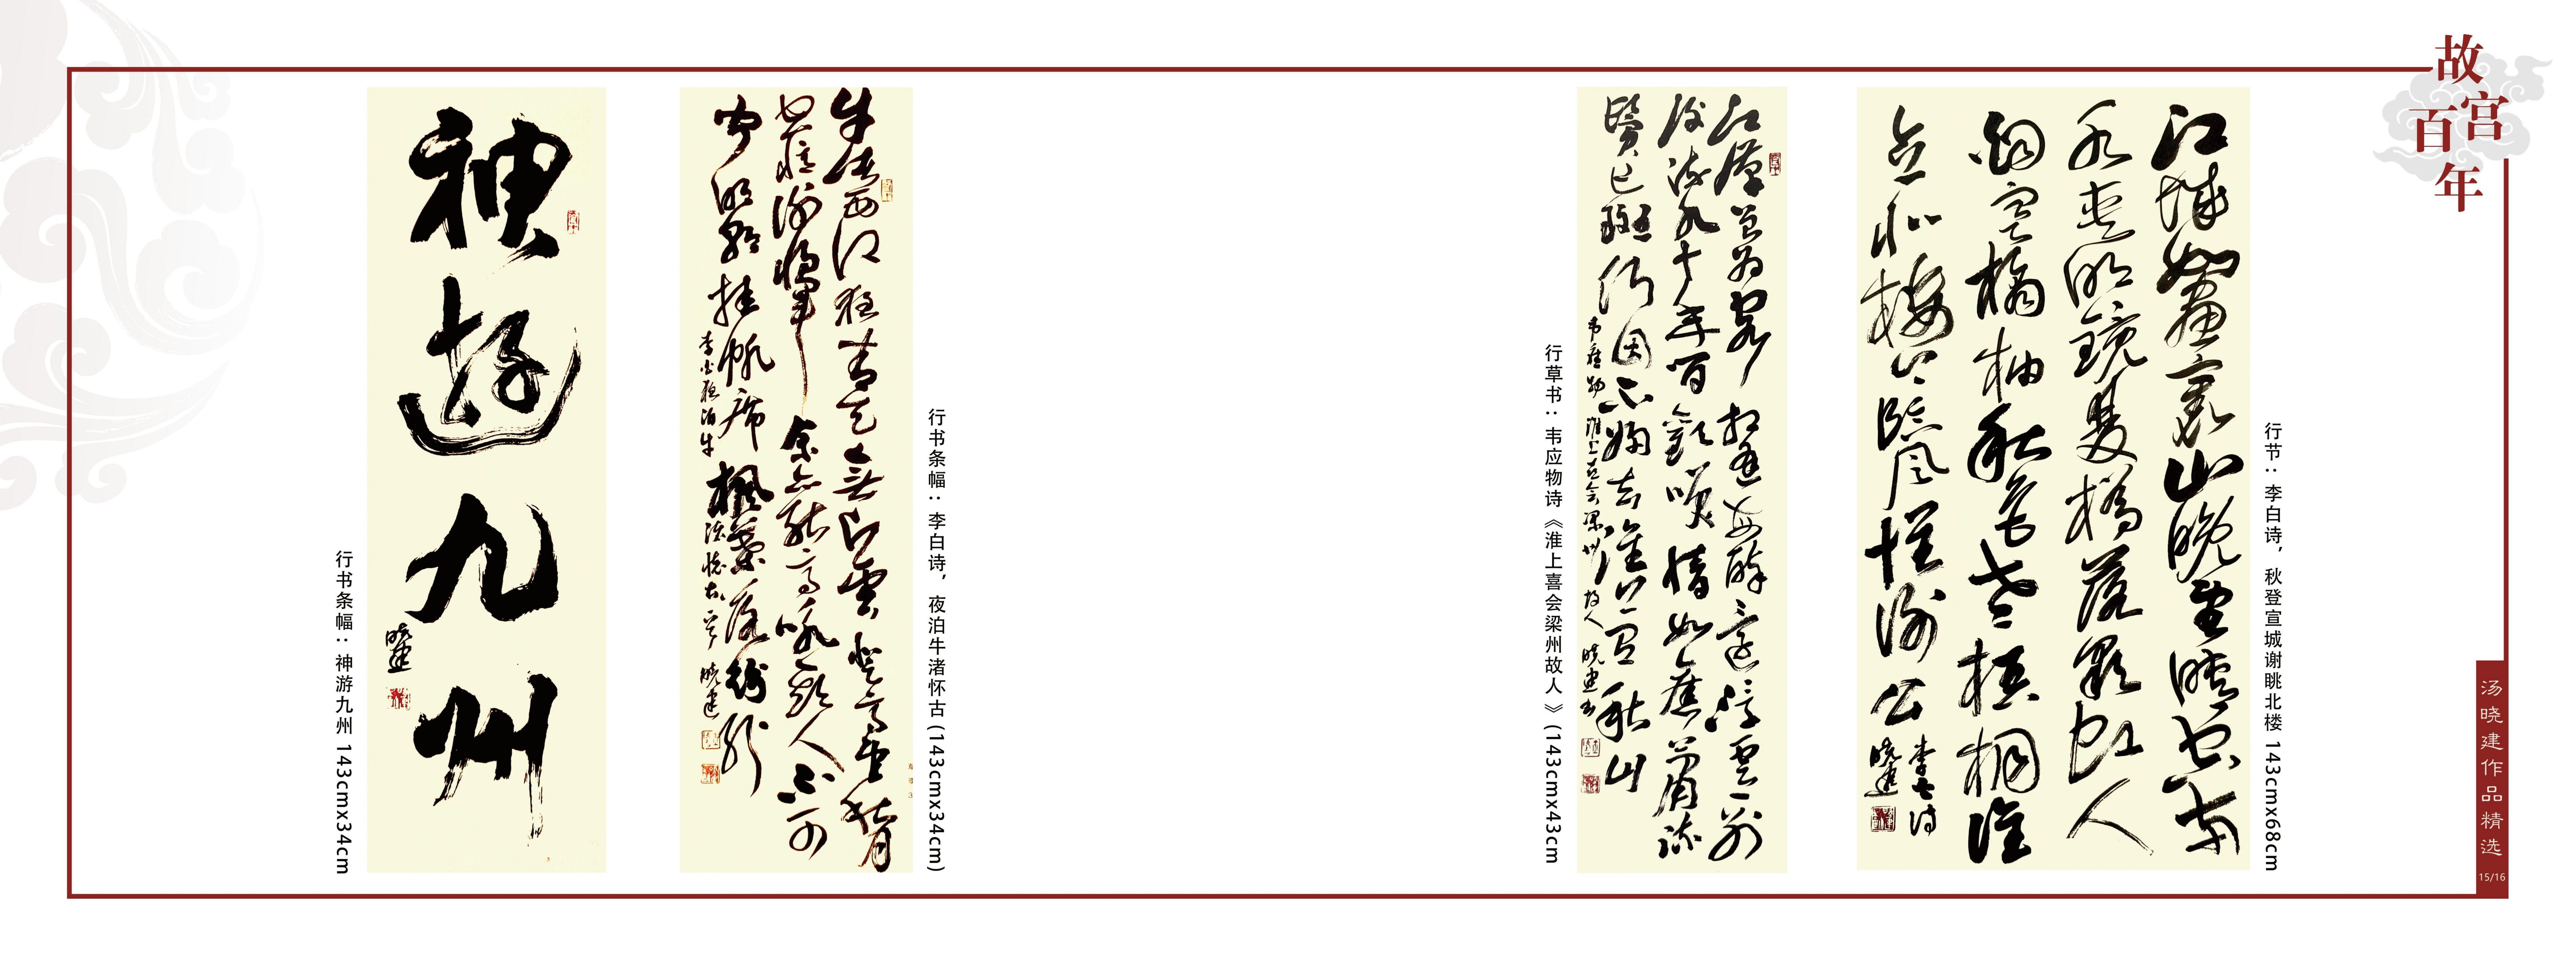 故宫百年
江城如畫裏山晚望晴空雨
水夾明鏡雙橋落彩虹人
烟寒橘柚秋色老梧桐誰
念北樓上臨風懷謝公
李白诗
晓建
行节：李白诗，秋登宣城谢眺北楼 143cmx68cm
江漢曾为客相逢每醉還浮雲一别
後流水十年間歡笑情如舊蕭疏
鬢已斑何因不歸去淮上有秋山
韦应物淮上喜会梁州故人 晓建书
行草书：韦应物诗《淮上喜会梁州故人》(143cmx43cm
牛渚西江夜青天無片雲登高望秋月
空憶謝將軍余亦能高詠斯人不可
聞明朝挂帆席楓葉落紛紛
李白夜泊牛渚懷古一首 晓建
行书条幅：李白诗，夜泊牛渚怀古 (143cmx34cm)
神遊九州
晓建
行书条幅：神游九州 143cmx34cm
汤晓建作品精选
15/16